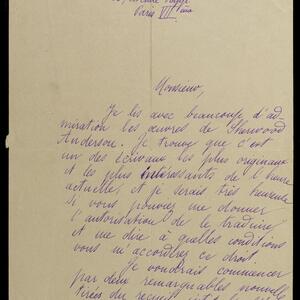 Paris VII ème
Monsieur,
Je lis avec beaucoup d'ad-
miration les œuvres de Sherwood
Anderson. Je trouve que c'est
un des écrivains les plus originaux
et les plus intéressants de l'heure
actuelle, et je serais très heureuse
si vous pouviez me donner
l'autorisation de le traduire,
et me dire à quelles conditions
vous m'accorderez ce droit.
Je voudrais commencer
par deux remarquables nouvelles
tirées du recueil